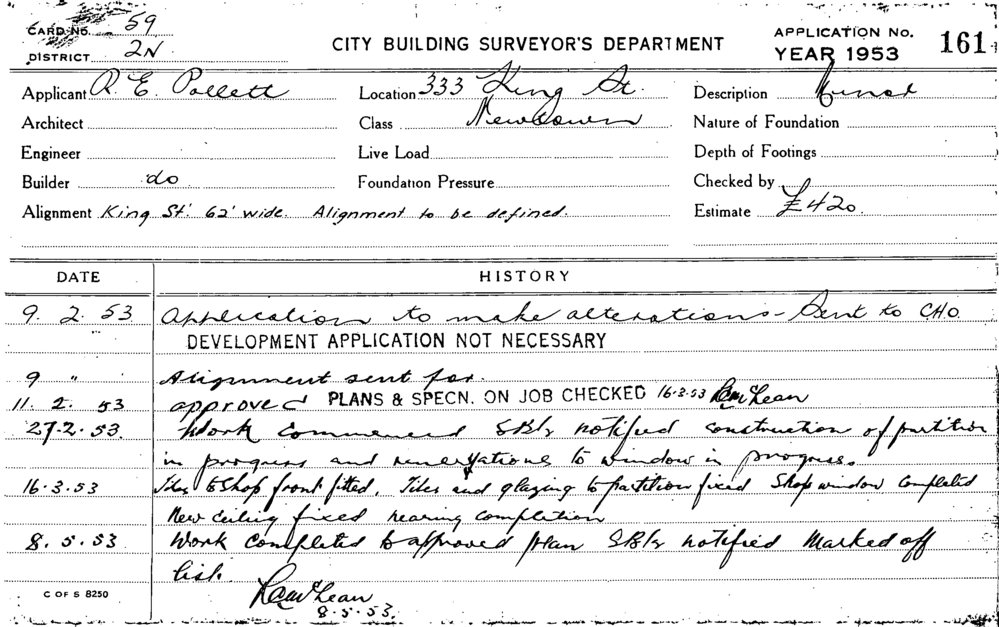 CARD No. 59
DISTRICT 2N
CITY BUILDING SURVEYOR'S DEPARTMENT
APPLICATION No. 161
YEAR 1953
Applicant R. E. Pollett Location 333 King St. Description Minor
Architect Class Newtown Nature of Foundation
Engineer Live Load Depth of Footings
Builder do Foundation Pressure Checked by
Alignment King St. 62' wide. Alignment to be defined. Estimate £420
DATE HISTORY
9. 2. 53 Application to make alterations - Sent to CHO
DEVELOPMENT APPLICATION NOT NECESSARY
9 " Alignment sent for.
11. 2. 53 approved PLANS & SPECN. ON JOB CHECKED 16·3·53 McLean
27.2.53. Work commenced notified construction of partition
in progress and to window in progress.
16·3·53 Tiles to Shop front fitted. Tiles and glazing to partition fixed Shop window completed
New ceiling fixed nearing completion
8. 5. 53 Work completed to approved plan notified Marked off
list.
McLean
8·5·53.
C OF S 8250